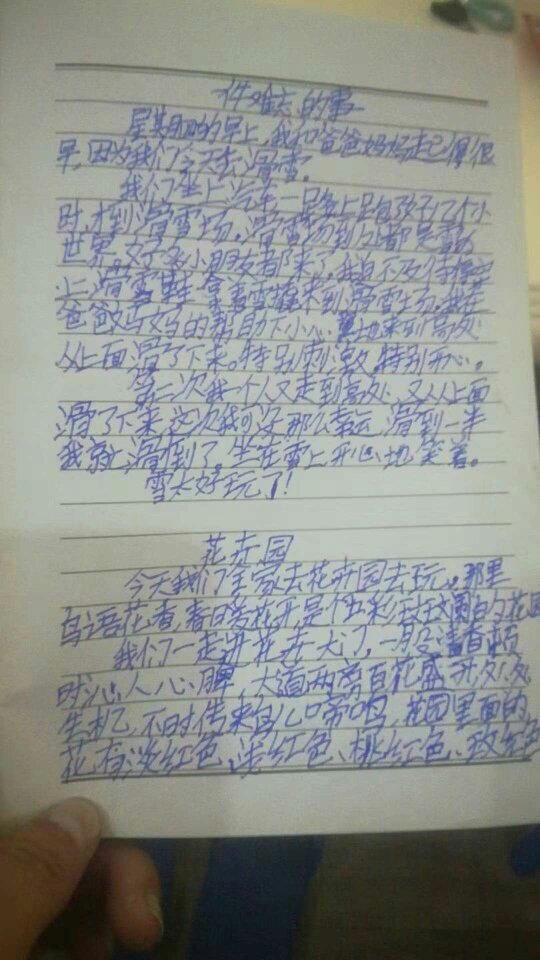 一件难忘的事
星期四的早上,我和爸爸妈妈走己得很
早,因为我们今天去滑雪。
我们坐上汽车一足多上足包孩子几个小
时,才到滑雪场。滑雪场到处都是雪的
世界,好多小朋友都来了。我迫不及待穿
上滑雪鞋 拿着雪撬来到滑雪场,我在
爸爸妈妈的帮助下小心翼地来到高处
从上面滑了下来。特别刺激,特别开心。
第二次我一个人又走到高处,又从上面
滑了下来 这次我可没那么幸运,滑到一半
我就滑倒了。坐在雪上开心地笑着。
雪太好玩了!
花卉园
今天我们全家去花卉园去玩。那里
鸟语花香,春暖花开,是个五彩斑斓的花园
我们一走进花卉大门,一股清香顿
时沁人心脾,大道两旁百花盛开,处处
生机,不时传来鸟儿啼鸣,花园里面的
花有淡红色、浅红色、桃红色、玫红色